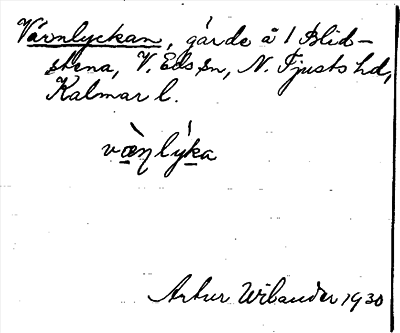 Värnlyckan, gärde å 1 Blid-
stena, V. Eds sn, N. Tjusts hd,
Kalmar l.
væ̀ꞃlýka
Artur Wibander 1930